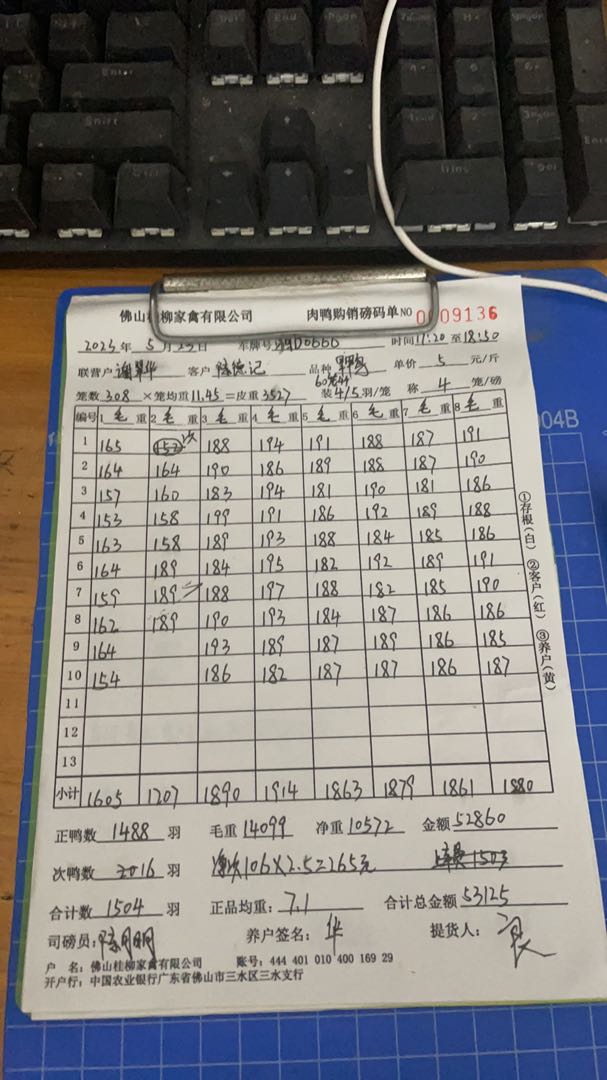 佛山桂柳家禽有限公司 肉鸭购销磅码单NO 0009136
2025年 5月25日 车牌号 时间17:20至18:50
联营户 谢翠华 客户 陈德记 品种 单价 5 元/斤
笼数 308 ×笼均重 11.45 =皮重 3527 装 4/5 羽/笼 称 4 笼/磅
编号 1 毛 重 2 毛 重 3 毛 重 4 毛 重 5 毛 重 6 毛 重 7 毛 重 8 毛 重
1 165 152次 188 194 191 188 187 191
2 164 164 190 186 189 188 187 190
3 157 160 183 194 181 190 181 186
4 153 158 199 191 186 192 189 188
5 163 158 189 193 188 184 185 186
6 164 189 184 195 182 192 189 191
7 159 189 188 197 188 182 185 190
8 162 189 190 193 184 187 186 186
9 164 193 189 187 189 186 185
10 154 186 182 187 187 186 187
11
12
13
小计 1605 1207 1890 1914 1863 1879 1861 1880
正鸭数 1488 羽 毛重 14099 净重 10572 金额 52860
次鸭数 16 羽 净次106×2.5=265元
合计数 1504 羽 正品均重: 7.1 合计总金额 53125
司磅员: 养户签名: 华 提货人:
户 名: 佛山桂柳家禽有限公司 账号: 444 401 010 400 169 29
开户行: 中国农业银行广东省佛山市三水区三水支行
①存根(白) ②客户(红) ③养户(黄)
004B
Enter
Shift
End